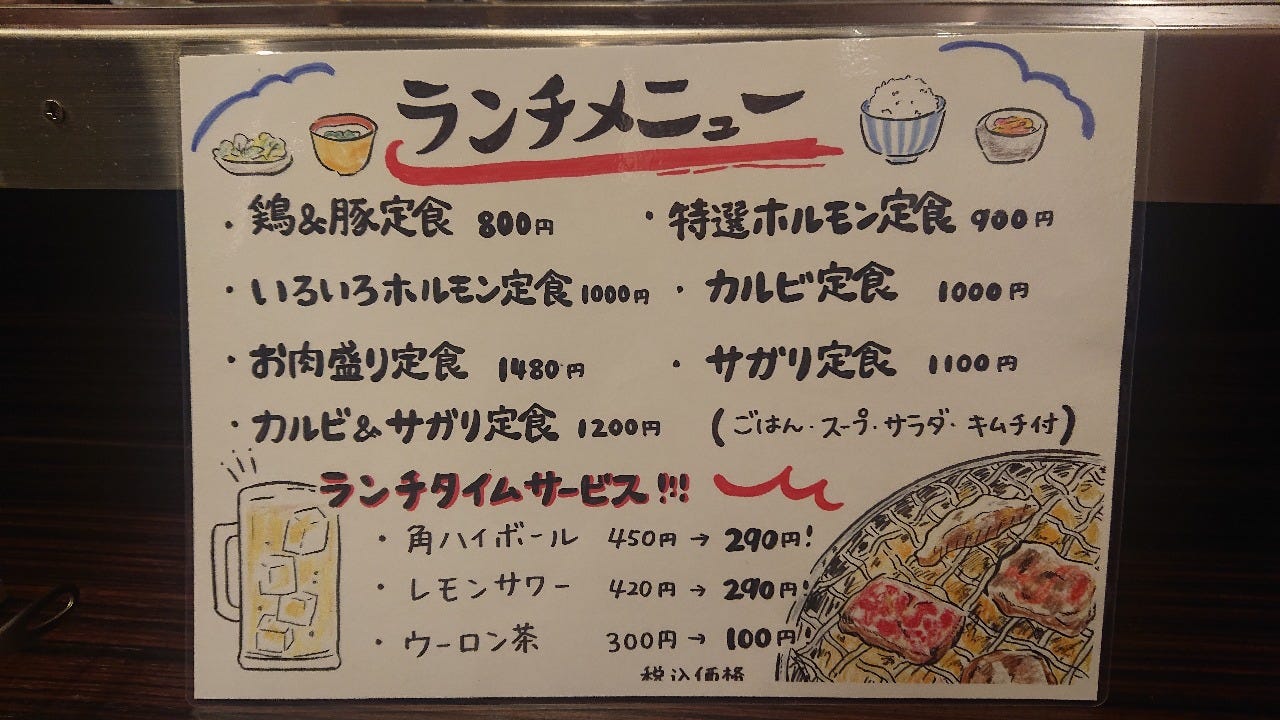 ランチメニュー
・鶏&豚定食 800円 ・特選ホルモン定食 900円
・いろいろホルモン定食 1000円 ・カルビ定食 1000円
・お肉盛り定食 1480円 ・サガリ定食 1100円
・カルビ&サガリ定食 1200円 (ごはん・スープ・サラダ・キムチ付)
ランチタイムサービス!!!
・角ハイボール 450円→290円!
・レモンサワー 420円→290円!
・ウーロン茶 300円→100円!
税込価格